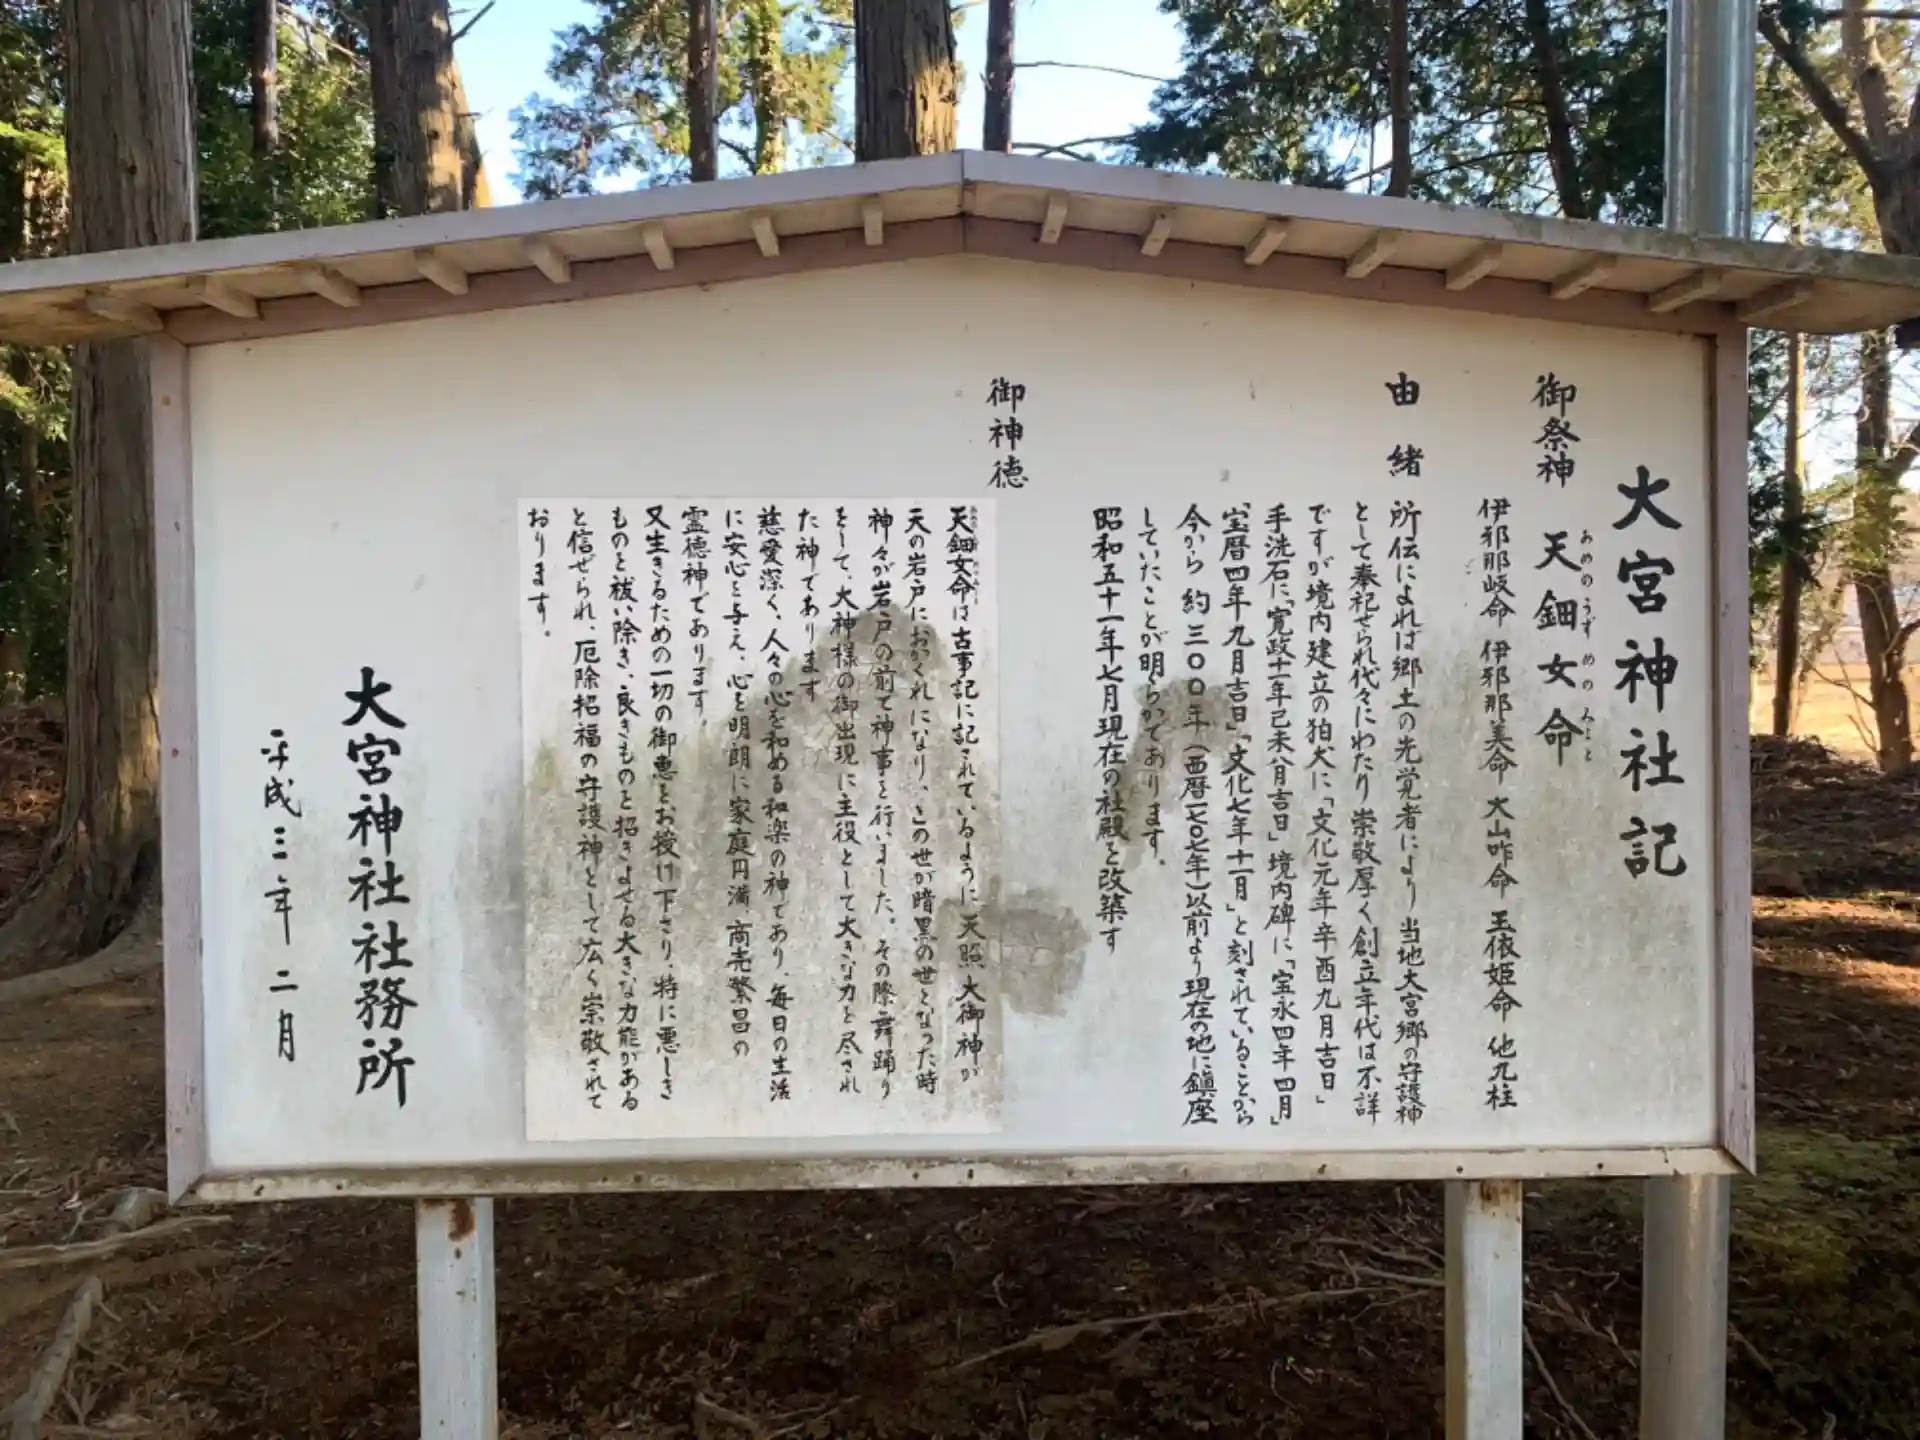 大宮神社記
御祭神 天鈿女命
あめのうずめのみこと
伊邪那岐命 伊邪那美命 大山咋命 玉依姫命 他九柱
由緒
所伝によれば郷土の先覚者により当地大宮郷の守護神
として奉祀せられ代々にわたり崇敬厚く創立年代は不詳
ですが境内建立の狛犬に「文化元年辛酉九月吉日」
手洗石に「寛政十一年己未八月吉日」境内碑に「宝永四年四月」
「宝暦四年九月吉日」「文化七年十一月」と刻されていることから
今から約三〇〇年(西暦一七〇七年)以前より現在の地に鎮座
していたことが明らかであります。
昭和五十一年七月現在の社殿を改築す
御神徳
天鈿女命は古事記に記されているように天照大御神が
天の岩戸におかくれになり、この世が暗黒の世となった時
神々が岩戸の前で神事を行いました。その際舞踊り
をして、大神様の御出現に主役として大きな力を尽され
た神であります
慈愛深く、人々の心を和める和楽の神であり、毎日の生活
に安心を与え、心を明朗に家庭円満、商売繁昌の
霊徳神であります。
又生きるための一切の御恵をお授け下さり、特に悪しき
ものを祓い除き、良きものを招きよせる大きな力能がある
と信ぜられ、厄除招福の守護神として広く崇敬されて
おります。
大宮神社社務所
平成三年二月